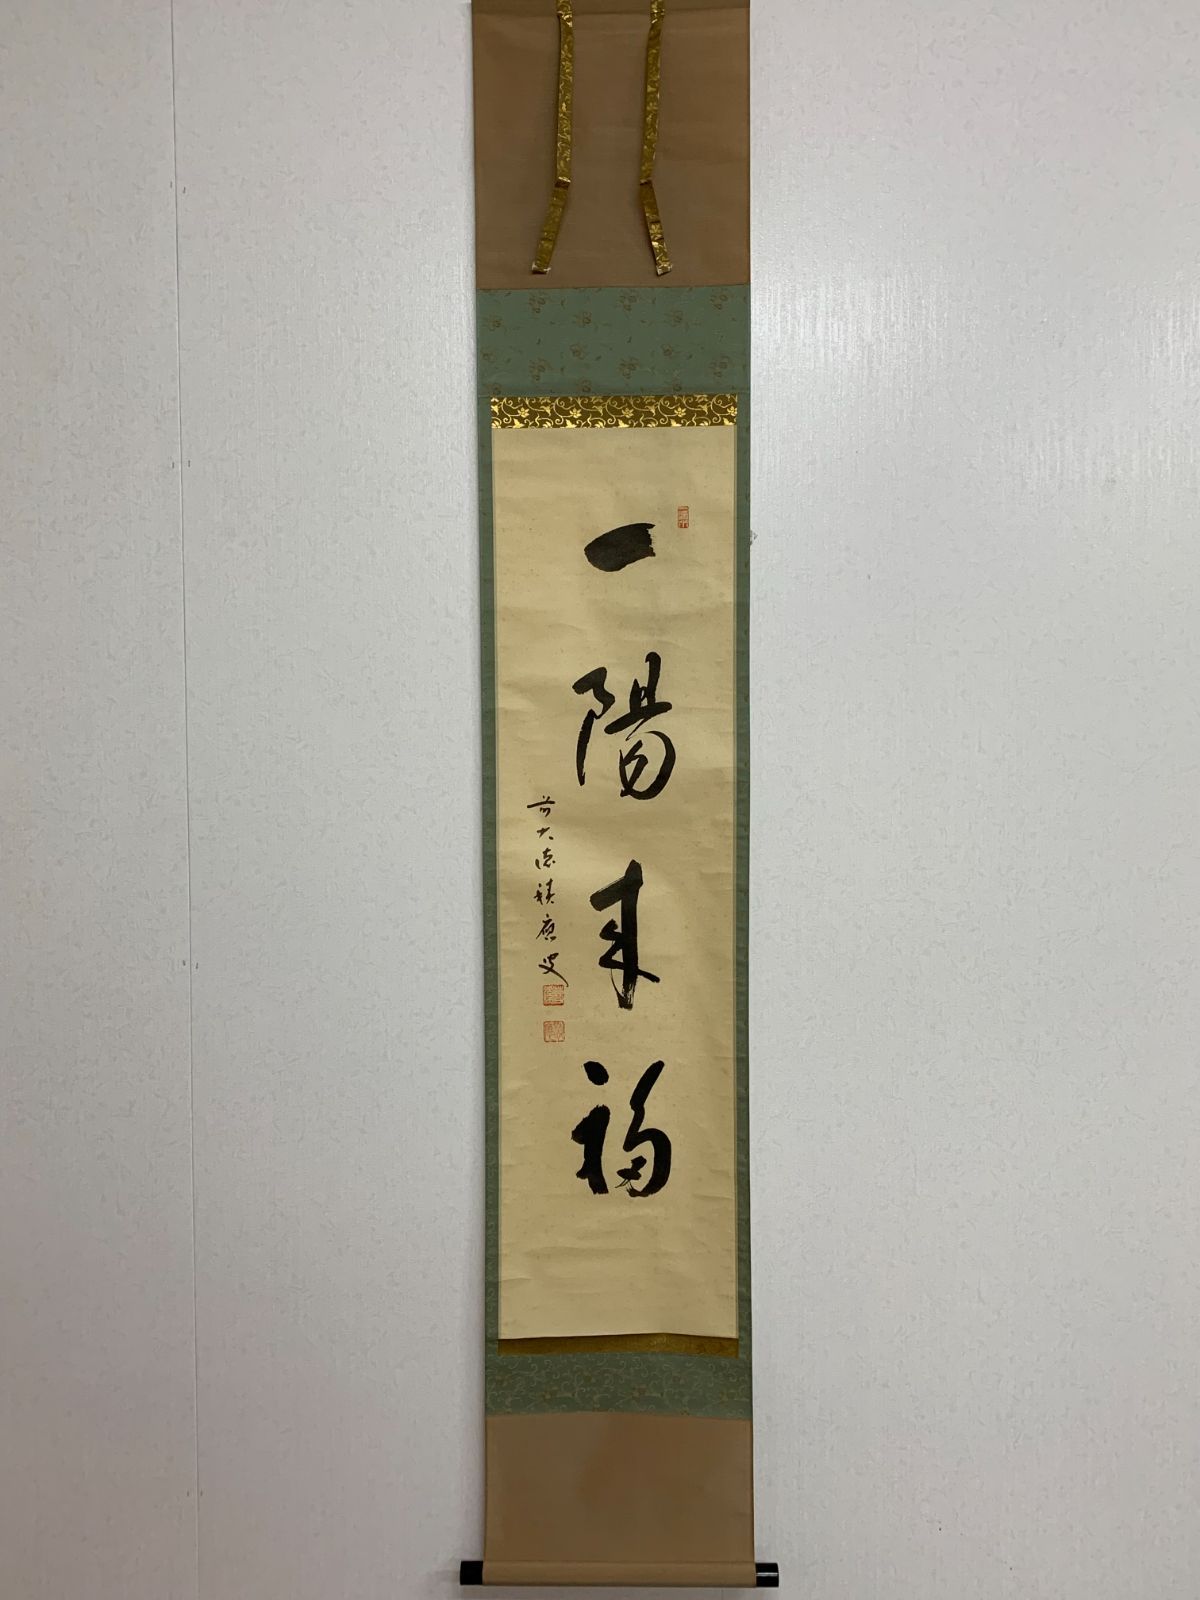 一陽来福
前大徳積應叟